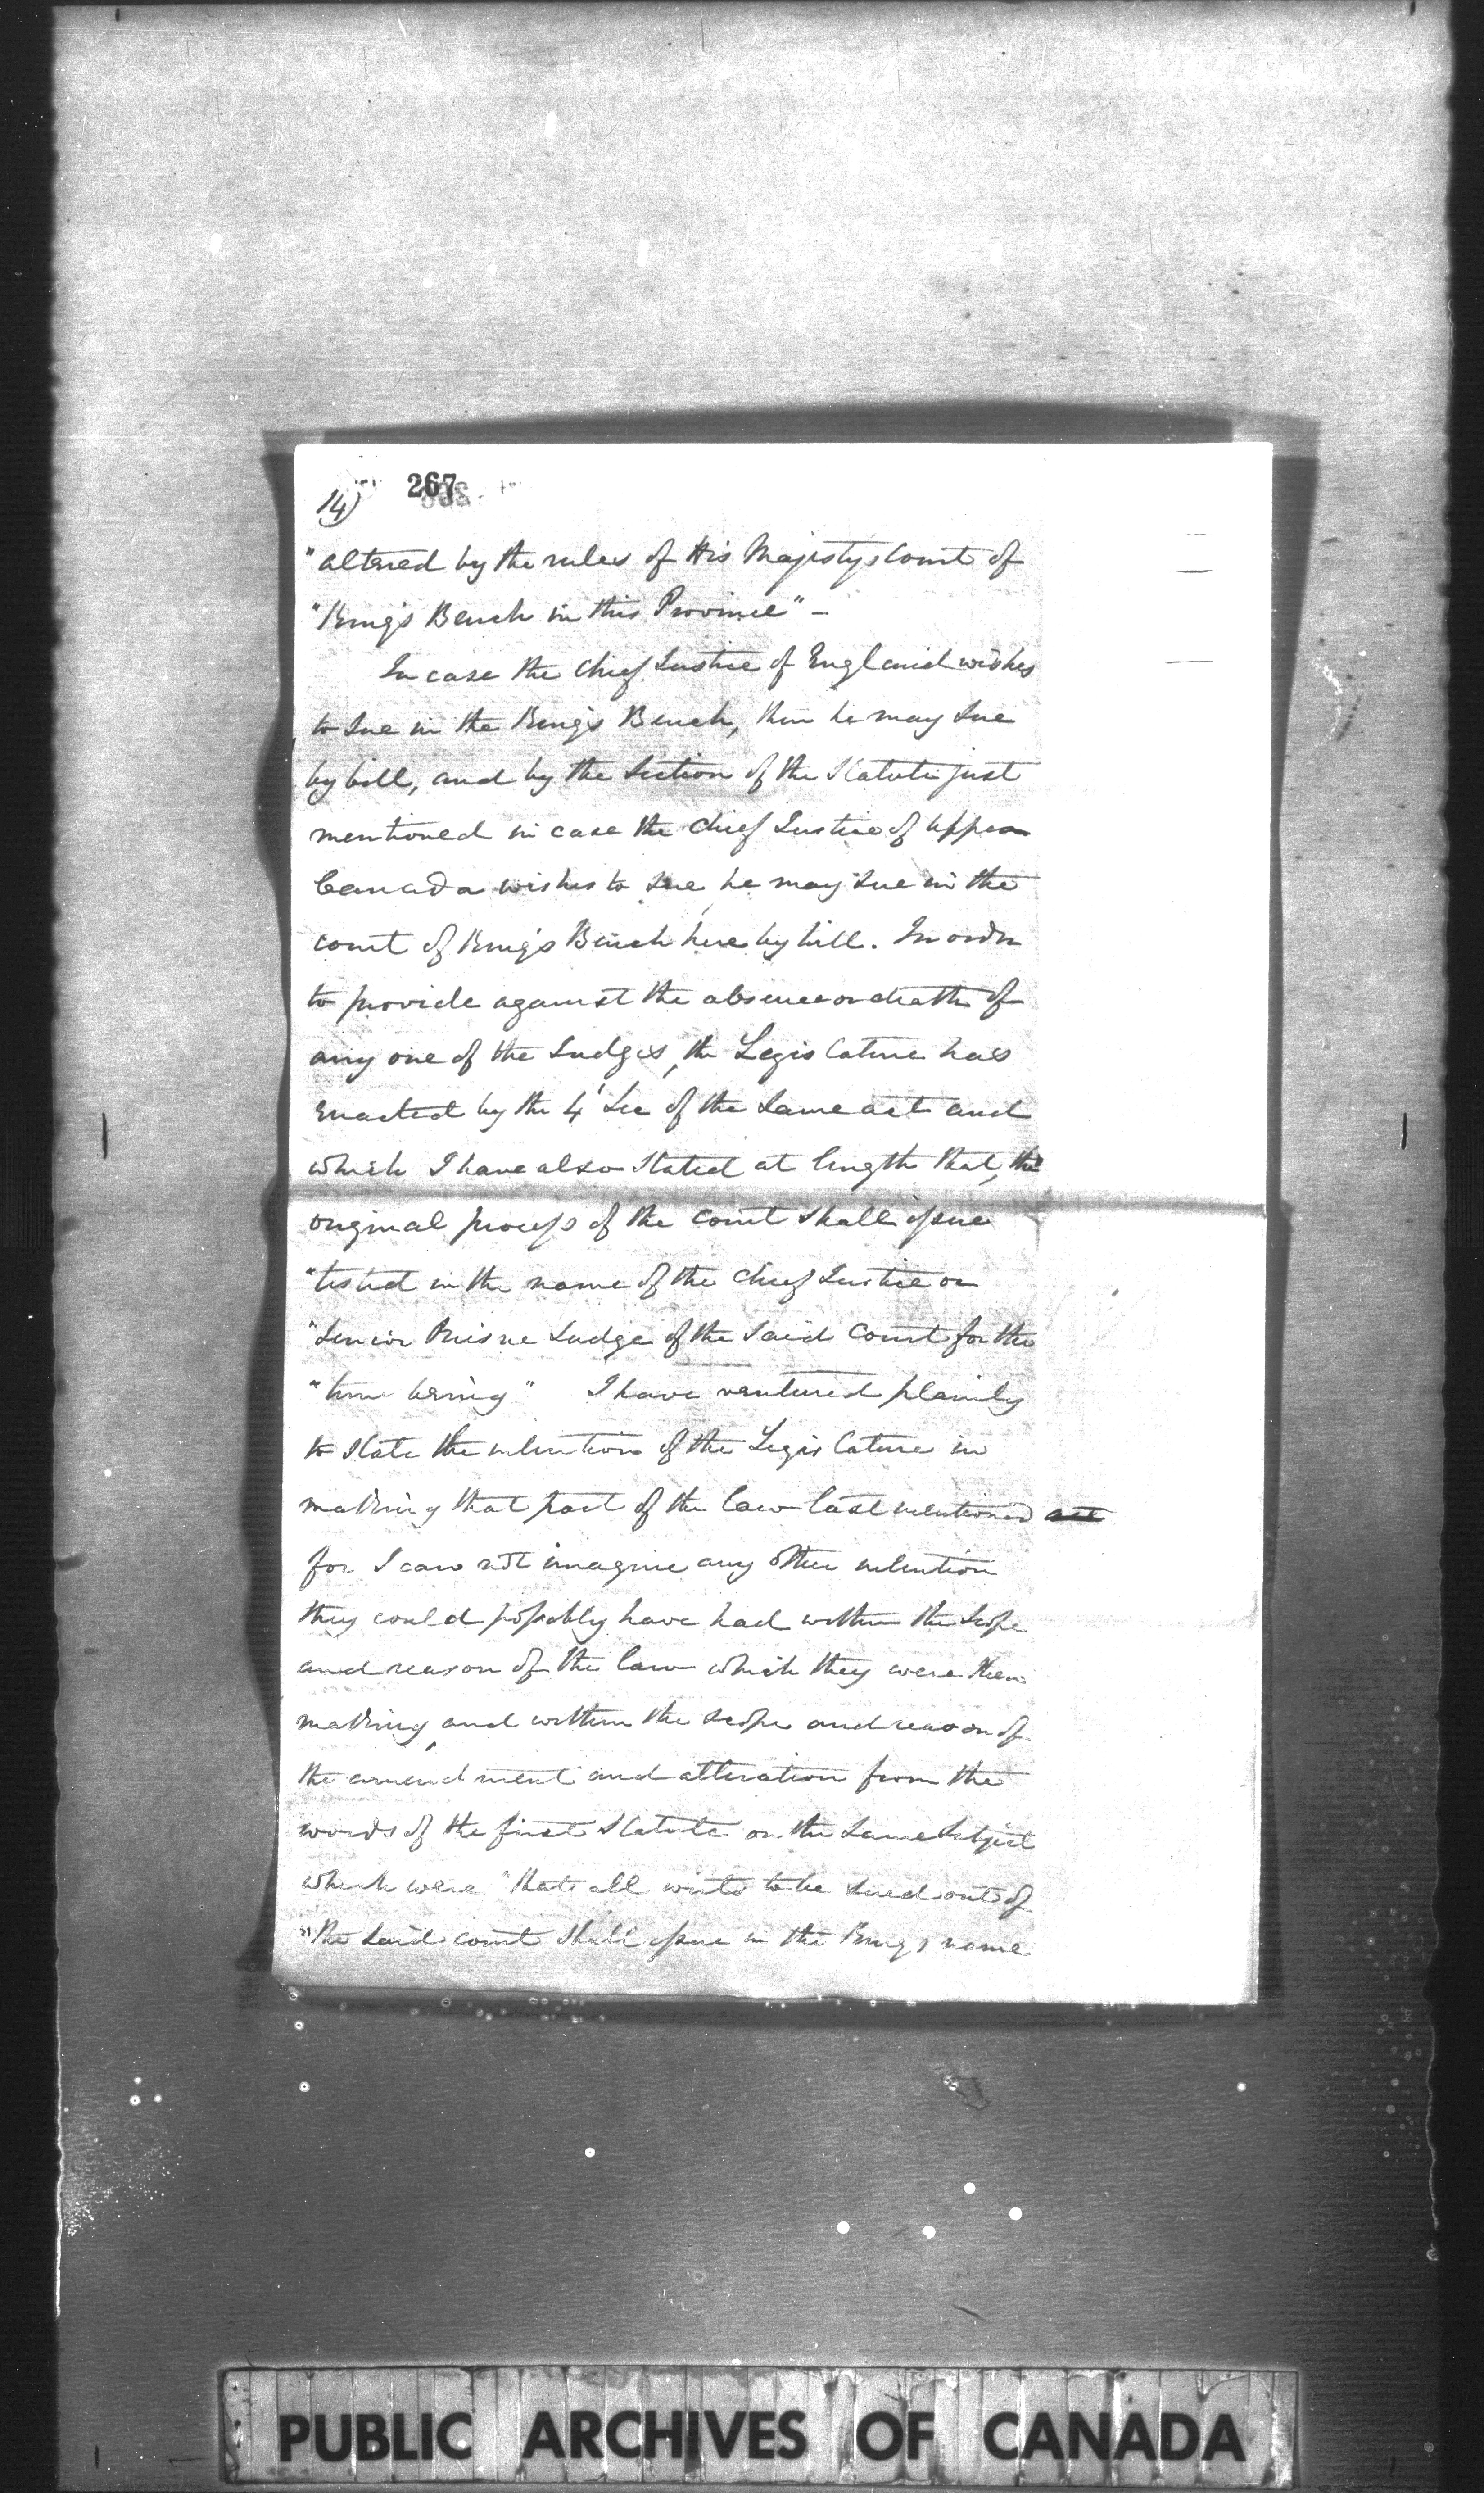 14)
267
"altered by the rules of His Majestys Court of
"King's Bench in this Province" –
In case the Chief Justice of England wishes
to sue in the King's Bench, then he may sue
by bill, and by the Section of the Statute just
mentioned in case the Chief Justice of Upper
Canada wishes to sue he may sue in the
court of King's Bench here by bill. In order
to provide against the absence or death of
any one of the Judges, the Legislature has
enacted by the 4' Sec of the same act and
which I have also stated at length that, the
original process of the court shall issue
"tested in the name of the Chief Justice or
"Senior Puisne Judge of the said Court for the
"time being" I have ventured plainly
to state the intention of the Legislature in
making that part of the law last mentioned
for I can not imagine any other intention
they could possibly have had within the scope
and reason of the law which they were then
making, and within the scope and reason of
the amendment and alteration from the
words of the first Statute on the same subject
which were "that all writs to be sued out of
"the said court shall issue in the King's name
PUBLIC ARCHIVES OF CANADA